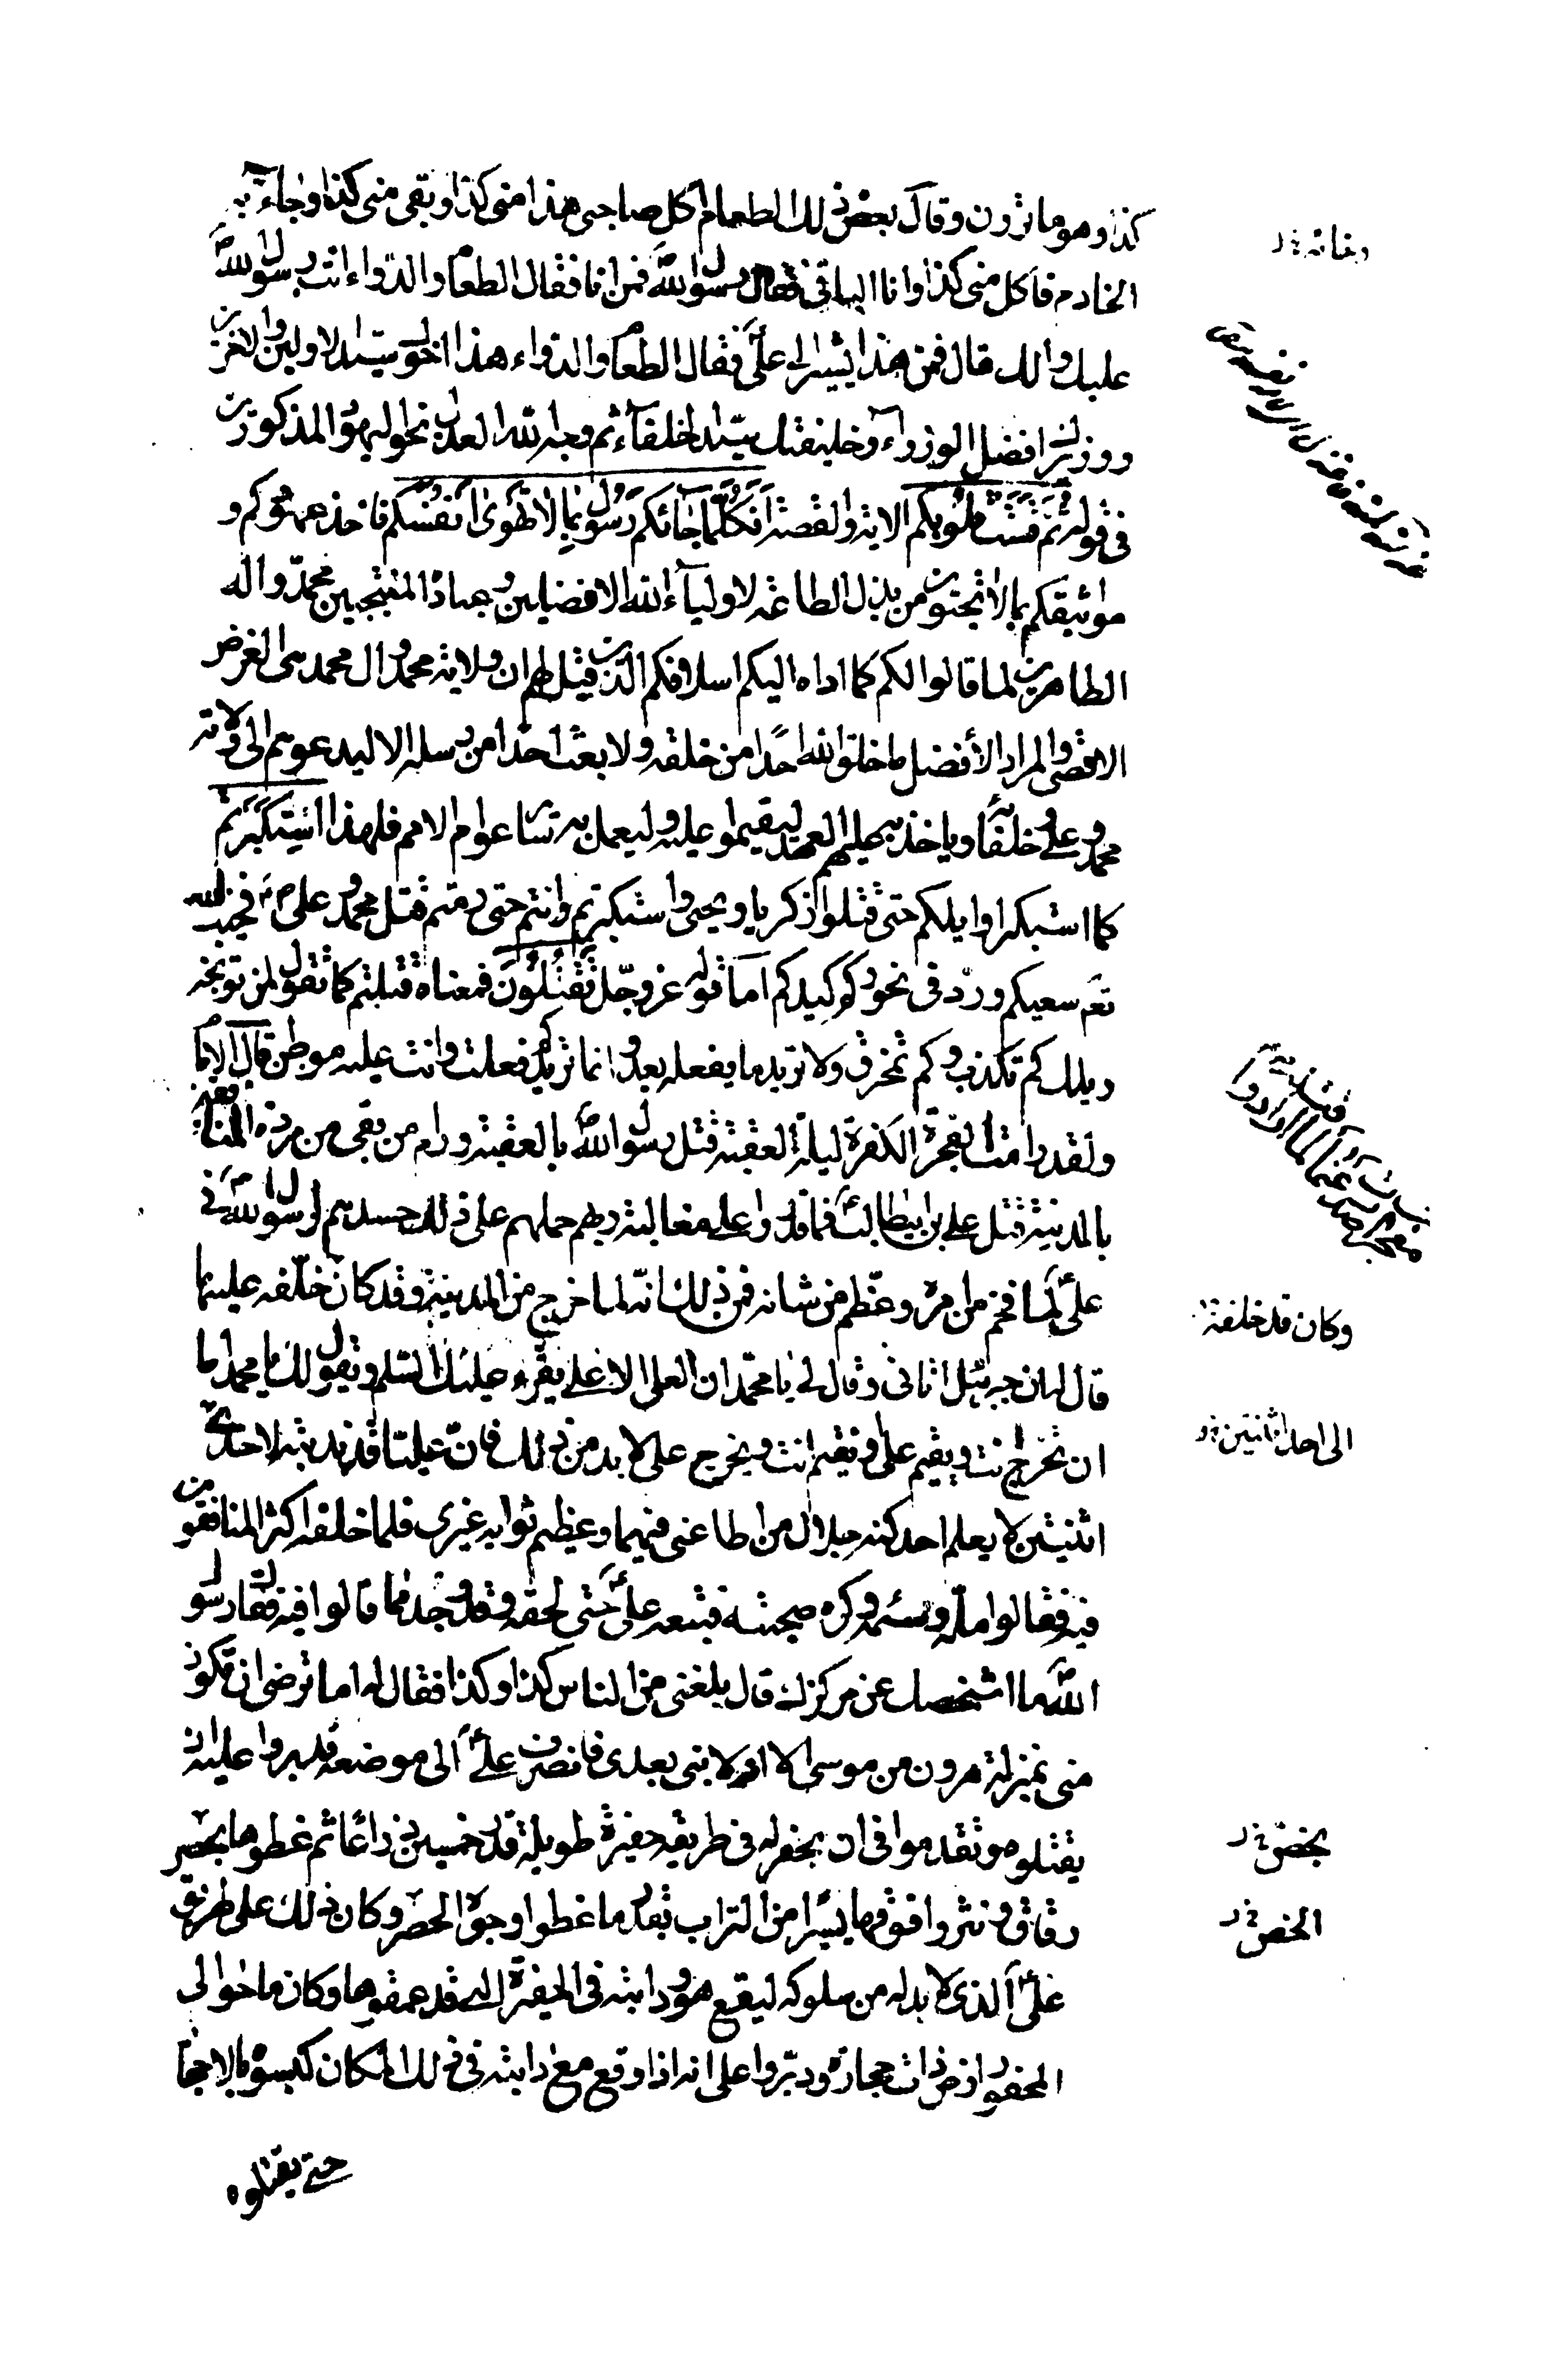 كذا وهو ما ترون وقال بعض ذلك الطعام اكل صاحبى هذا منى كذا وبقى منى كذا وجاء به
الخادم فاكل منى كذا وانا الباقى فقال رسول الله فمن انا فقال الطعام والدواء انت رسول الله ص
عليك والك قال فمن هذا يشير الى على ع فقال الطعام والدواء هذا اخوك سيد الاولين والاخرين
ووزيرك افضل الوزراء وخليفتك سيد الخلفاء ثم وجه الله العذل نحو اليهود المذكورين
فى قوله ثم قست قلوبكم الاية والقصة افكلما جائكم رسول بما لا تهوى انفسكم فاخذ عهودكم و
مواثيقكم بما لا تحبون من بذل الطاعة لاولياء الله الافضلين وعباده المنتجبين محمد واله
الطاهرين لما قالوا لكم كما اداه اليكم اسلافكم الذين قيل لهم ان ولاية محمد وال محمد هى الغرض
الاقصى والمراد الأفضل ما خلق الله احدا من خلقه ولا بعث احدا من رسله الا ليدعوهم الى ولاية
محمد وعلى وخلفائه وياخذ به عليهم العهد ليقيموا عليه وليعمل به سائر عوام الامم فلهذا استكبرتم
كما استكبر اوايلكم حتى قتلوا زكريا ويحيى واستكبرتم وانتم حتى رمتم قتل محمد وعلى ع فخيب الله
تع سعيكم ورد فى نحوركم كيدكم اما قوله عز وجل تقتلون فمعناه قتلتم كما تقول لمن توبخه
ويلك كم تكذب وكم تمخرق ولا تريد ما يفعله بعد وانما تريد كم فعلت وانت عليه موطن قال الامام
ولقد رامت الفجرة الكفرة ليلة العقبة قتل رسول الله بالعقبة ورام من بقى من مردة المنافقين
بالمدينة قتل على بن ابيطالب ع فما قدروا على مغالبة ربهم حملهم على ذلك حسدهم لرسول الله ص فى
على ع لما فخم من امره وعظم من شانه فمن ذلك انه لما خرج من المدينة وقد كان خلفه عليها
قال له ان جبرئيل اتانى وقال لى يا محمد ان العلى الاعلى يقرء عليك السلم ويقول لك يا محمد اما
ان تخرج انت ويقيم على او تقيم انت ويخرج على لا بد من ذلك فان عليا قد ندبته لاحدى
اثنتين لا يعلم احد كنه جلال من اطاعنى فيهما وعظيم ثوابه غيرى فلما خلفه اكثر المنافقون
فيه فقالوا مله وسئمه وكره صحبته فتبعه على ع حتى لحقه وقد وجد مما قالوا فيه فقال رسول
الله ص ما اشخصك عن مركزك قال بلغنى من الناس كذا وكذا فقال له اما ترضى ان تكون
منى بمنزلة هرون من موسى الا انه لا نبى بعدى فانصرف على ع الى موضعه فدبروا عليه ان
يقتلوه وتقدموا فى ان يحفر له فى طريقه حفيرة طويلة قدر خمسين ذراعا ثم غطوها بحصر
رقاق ونثروا فوقها يسيرا من التراب بقدر ما غطوا وجوه الحصر وكان ذلك على طريق
على ع الذى لا بد له من سلوكه ليقع هو ودابته فى الحفيرة التى قد عمقوها وكان ما حوالى
المحفور ارض ذات حجارة ودبروا على انه اذا وقع مع دابته فى ذلك المكان كبسوه بالاحجار
حتى يقتلوه
وكان قد خلفه
الى احد اثنتين
بخص خ ر
الخص خ ر